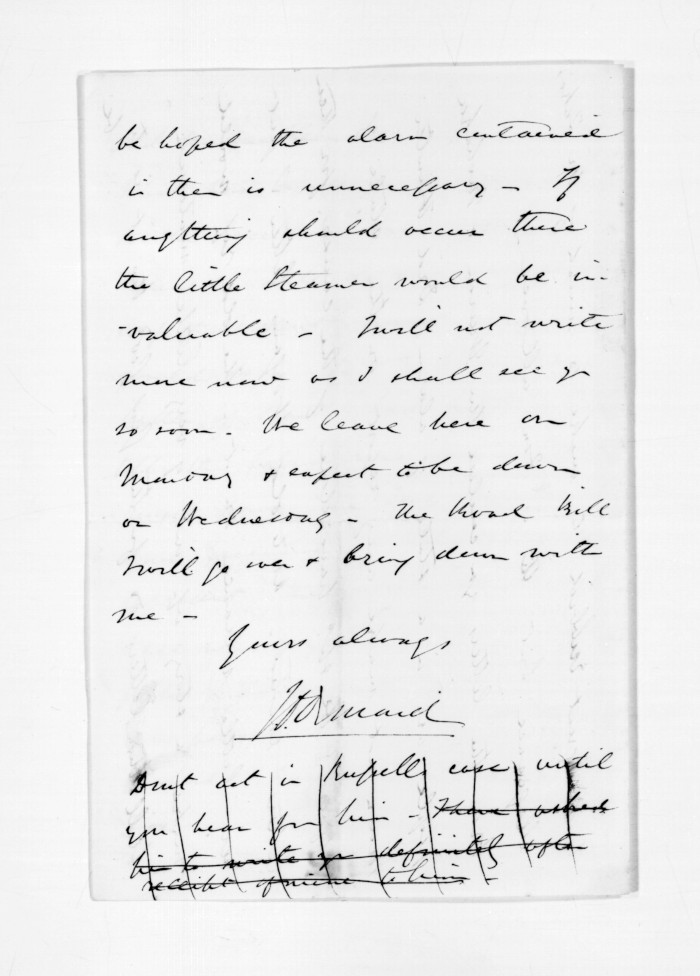 be hoped the alarm contained
in them is unnecessary - If
anything should occur there
the little Steamer would be in-
-valuable - I will not write
more now as I shall see yo
so soon - We leave here on
Monday & expect to be down
on Wednesday - The Road Bill
I will go over & bring down with
me -
Yours always
J. D. Ormond
Dont act in Russells case until
you hear fm him - I have asked
him to write yo definitely after
receipt of mine to him -